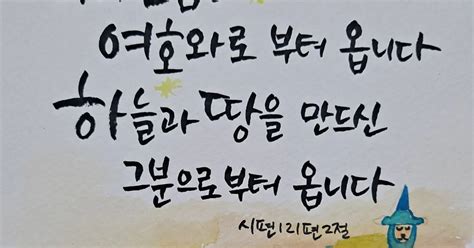 여호와로 부터 옵니다
하늘과 땅을 만드신
그분으로부터 옵니다
시편121편2절